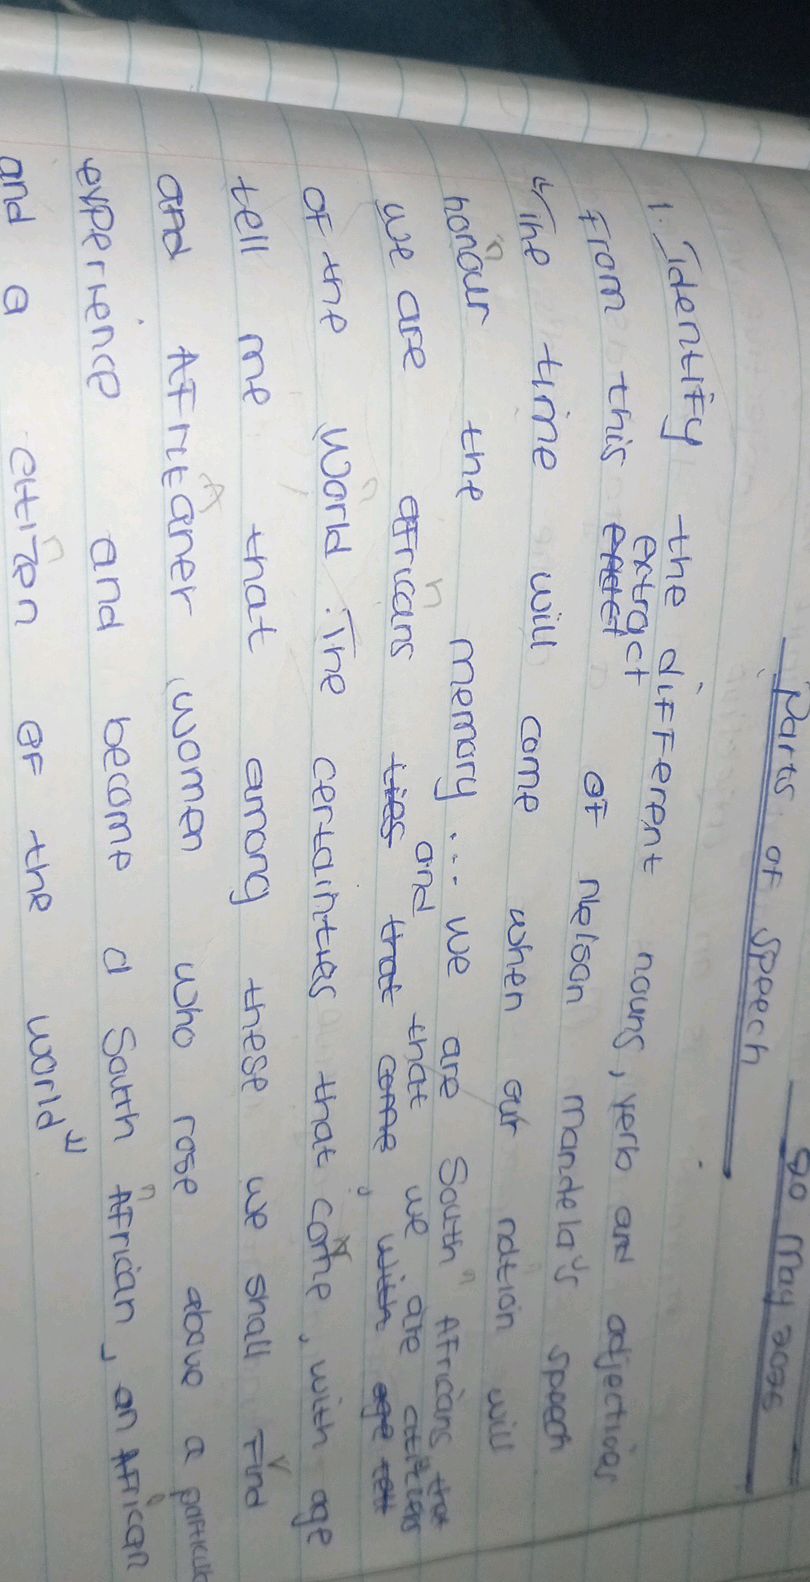 20 May 2026
Parts of speech
1. Identify the different nouns, verb and adjectives
from this extract of Nelson Mandela's speech
"The time will come when our nation will
honour the memory... we are South Africans that
we are africans and that we are citizens
of the World. The certainties that come, with age
tell me that among these we shall find
and Africaner women who rose above a particular
experience and become a South African, an African
and a citizen of the world"